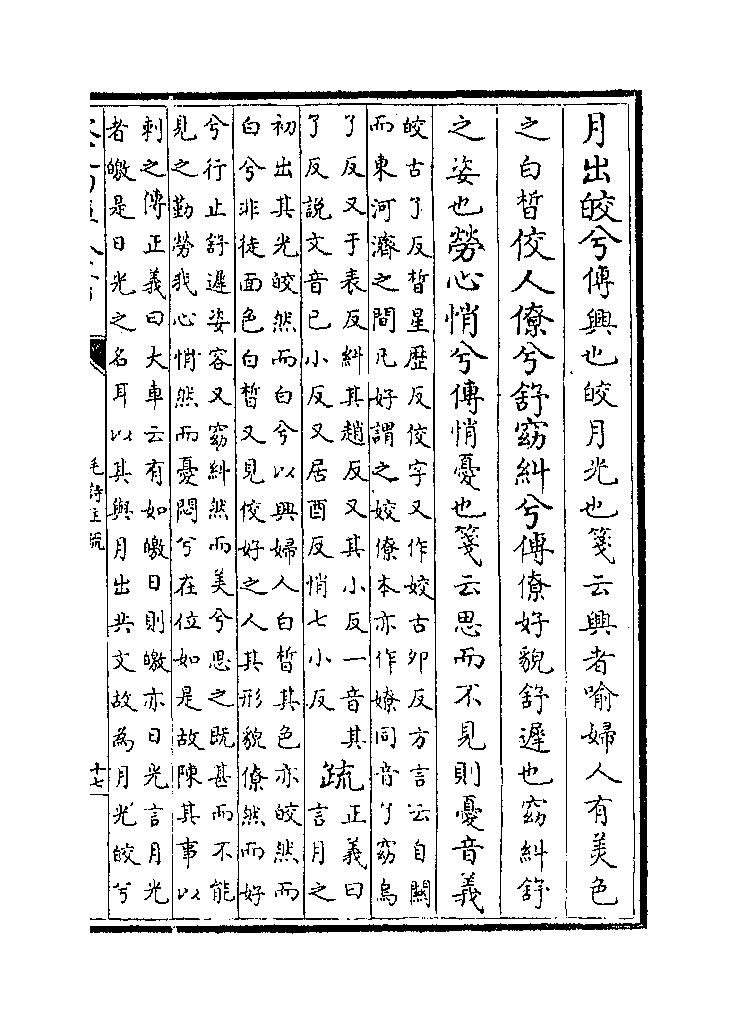 月出皎兮傳興也皎月光也箋云興者喻婦人有美色
之白晳佼人僚兮舒窈糾兮傳僚好貌舒遲也窈糾舒
之姿也勞心悄兮傳悄憂也箋云思而不見則憂音義
皎古了反晳星歴反佼字又作姣古卯反方言云自關
而東河濟之間凡好謂之姣僚本亦作嫽同音了窈烏
了反又于表反糾其趙反又其小反一音其
了反說文音已小反又居酉反悄七小反
疏
正義曰
言月之
初出其光皎然而白兮以興婦人白晳其色亦皎然而
白兮非徒面色白晳又見佼好之人其形貌僚然而好
兮行止舒遲姿容又窈糾然而美兮思之既甚而不能
見之勤勞我心悄然而憂悶兮在位如是故陳其事以
刺之傳正義曰大車云有如皦日則皦亦日光言月光
者皦是日光之名耳以其與月出共文故為月光皎兮
毛詩注疏
十七